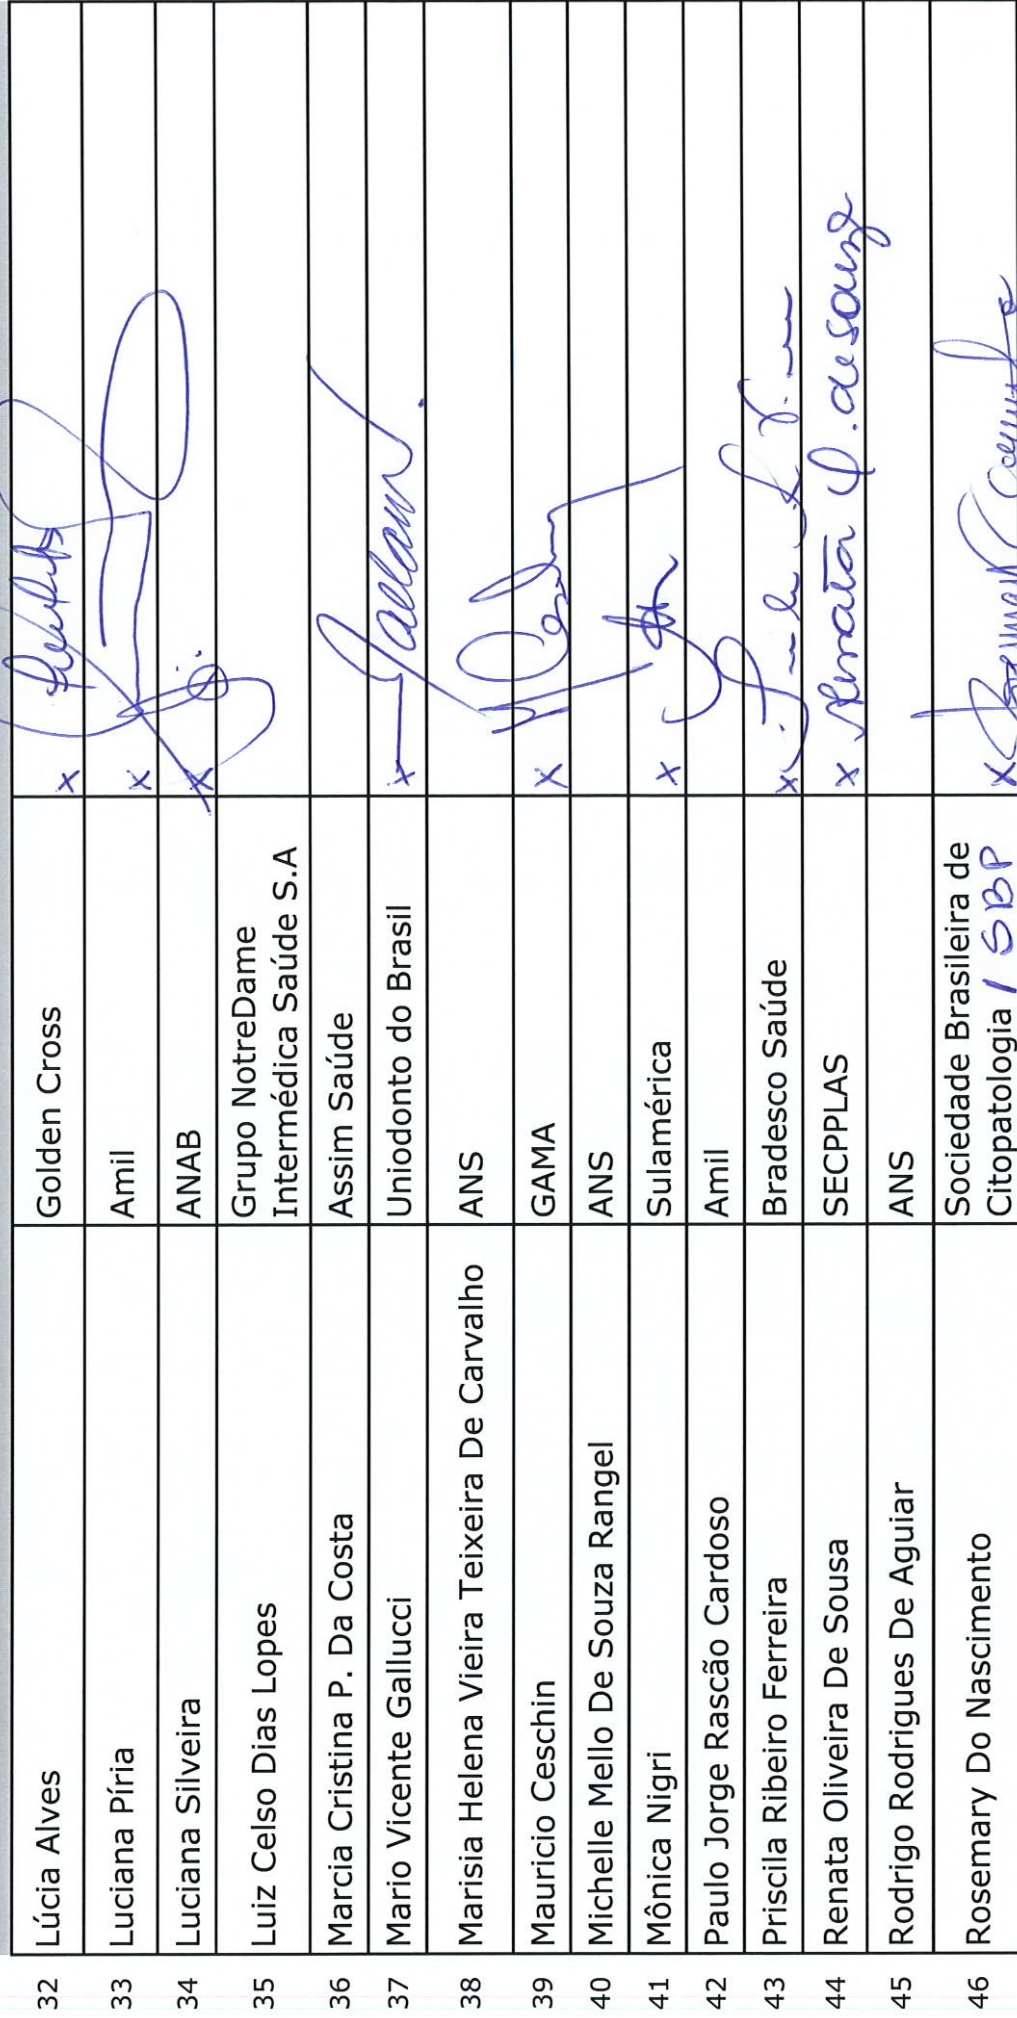 32 Lúcia Alves Golden Cross x
33 Luciana Píria Amil x
34 Luciana Silveira ANAB x
35 Luiz Celso Dias Lopes Grupo NotreDame
Intermédica Saúde S.A
36 Marcia Cristina P. Da Costa Assim Saúde
37 Mario Vicente Gallucci Uniodonto do Brasil x
38 Marisia Helena Vieira Teixeira De Carvalho ANS
39 Mauricio Ceschin GAMA x
40 Michelle Mello De Souza Rangel ANS
41 Mônica Nigri Sulamérica x
42 Paulo Jorge Rascão Cardoso Amil
43 Priscila Ribeiro Ferreira Bradesco Saúde x
44 Renata Oliveira De Sousa SECPPLAS x Renata O. de Sousa
45 Rodrigo Rodrigues De Aguiar ANS
46 Rosemary Do Nascimento Sociedade Brasileira de
Citopatologia / SBP x